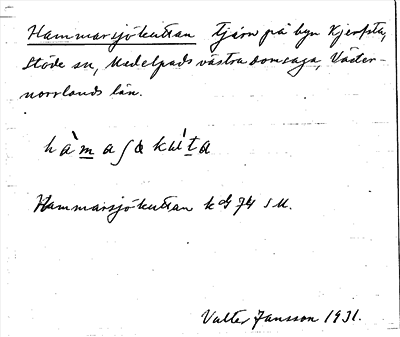 Hammarsjökuttan tjärn på byn Kjerfsta,
Stöde sn, Medelpads västra domsaga, Väster-
norrlands län.
hàmaʃøkùta
Hammarsjökuttan
Valter Jansson 1931.